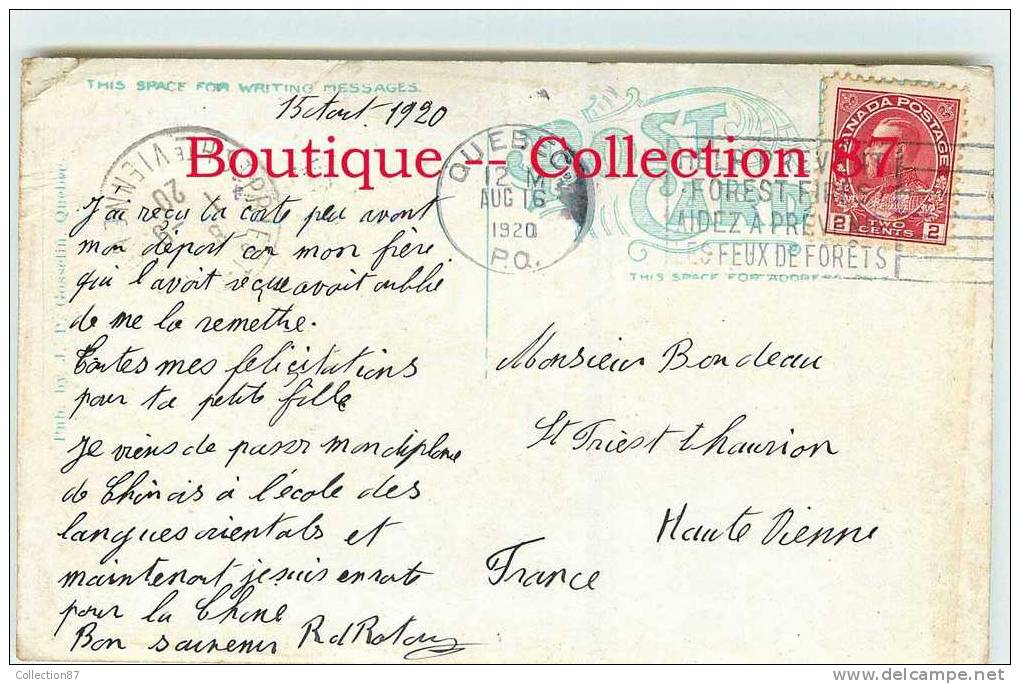 THIS SPACE FOR WRITING MESSAGES.
15 Aout. 1920
Boutique -- Collection 87
J'ai reçu ta carte peu avant
mon départ car mon frère
qui l'avait reçue avait oublié
de me la remettre.
Toutes mes félicitations
pour ta petite fille
Je viens de passer mon diplome
de Chinois à l'école des
langues orientales et
maintenant je suis en route
pour la Chine
Bon souvenir
Pub. by J. P. Gosselin Quebec
Hte VIENNE
20
POST CARD
QUEBEC
12 M
AUG 16
1920
P.Q.
HELP PREVENT
FOREST FIRES
AIDEZ A PREVENIR
LES FEUX DE FORÊTS
THIS SPACE FOR ADDRESS ONLY
CANADA POSTAGE
2 TWO 2
CENTS
Monsieur Bondeau
St Priest Thaurion
Haute Vienne
France
Collection87
www.delcampe.net